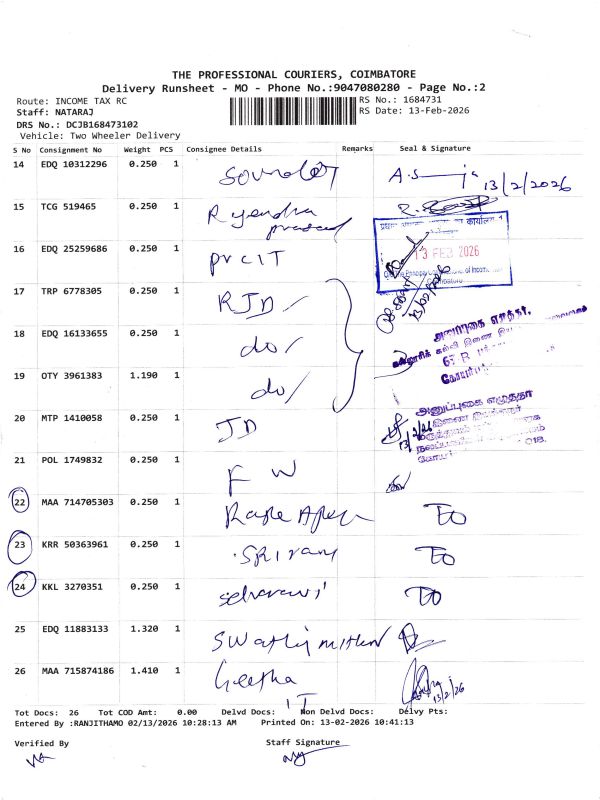 THE PROFESSIONAL COURIERS, COIMBATORE
Delivery Runsheet - MO - Phone No.:9047080280 - Page No.:2
Route: INCOME TAX RC
RS No.: 1684731
Staff: NATARAJ
RS Date: 13-Feb-2026
DRS No.: DCJB168473102
Vehicle: Two Wheeler Delivery
S No Consignment No Weight PCS Consignee Details Remarks Seal & Signature
14 EDQ 10312296 0.250 1 A.S 13/2/2026
15 TCG 519465 0.250 1 Rajendra prasad R.
16 EDQ 25259686 0.250 1 PrCIT
कार्यालय
13 FEB 2026
13/02/2026
17 TRP 6778305 0.250 1 RJD
18 EDQ 16133655 0.250 1 do
அனுப்புகை எழுத்தர்
கல்லூரிக் கல்வி இணை
19 OTY 3961383 1.190 1 do
20 MTP 1410058 0.250 1 JD
அனுப்புகை எழுத்தர்
13/2/26
21 POL 1749832 0.250 1 F W
22 MAA 714705303 0.250 1 TO
23 KRR 50363961 0.250 1 SRIram TO
24 KKL 3270351 0.250 1 TO
25 EDQ 11883133 1.320 1
26 MAA 715874186 1.410 1 Geetha 13/2/26
IT
Tot Docs: 26 Tot COD Amt: 0.00 Delvd Docs: Non Delvd Docs: Delvy Pts:
Entered By :RANJITHAMO 02/13/2026 10:28:13 AM Printed On: 13-02-2026 10:41:13
Verified By Staff Signature